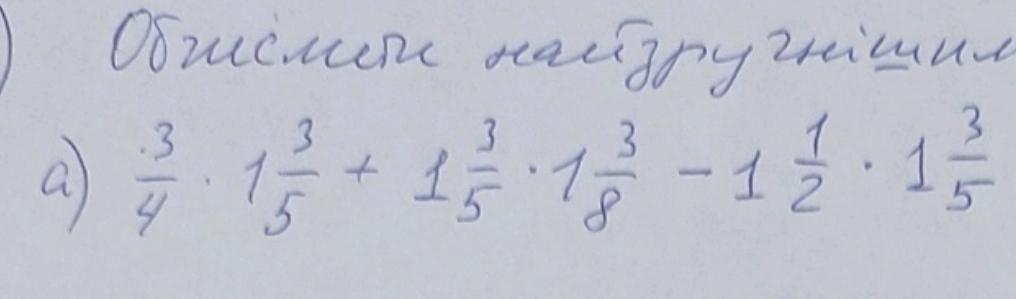 ) Обчислити найзручнішим
а) 3/4 · 1 3/5 + 1 3/5 · 1 3/8 − 1 1/2 · 1 3/5